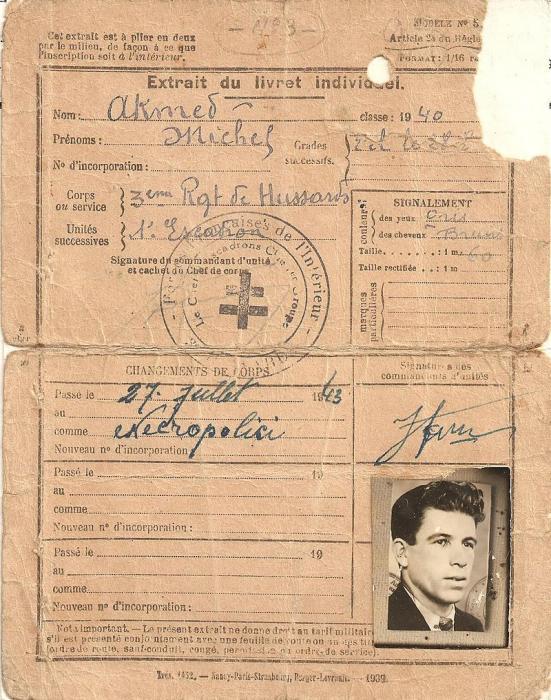 Cet extrait est à plier en deux
par le milieu, de façon à ce que
l'inscription soit à l'intérieur.
— N° 3 —
MODÈLE N° 5
Article 24 du Règle
FORMAT: 1/16 ra
Extrait du livret individuel.
Nom: Akmed
classe: 1940
Prénoms: Michel
Grades successifs.
N° d'incorporation:
Corps ou service } 3eme Rgt de Hussards
Unités successives } 1r Escadron
Signature du commandant d'unité
et cachet du Chef de corps
SIGNALEMENT
couleurs: { des yeux Gris
des cheveux
Taille : 1 m. 60
Taille rectifiée : 1 m
marques particulières
de l'Intérieur
CHANGEMENTS DE CORPS
Signatures des
commandants d'unités
Passé le 27 Juillet 1943
au
comme Necropolici
Nouveau n° d'incorporation
Passé le 19
au
comme
Nouveau n° d'incorporation :
Passé le 19
au
comme
Nouveau n° d'incorporation :
Nota important. — Le présent extrait ne donne droit au tarif militaire
s'il est présenté conjointement avec une feuille de route ou un des
(ordre de route, sauf-conduit, congé, permission ou ordre de service).
— Nancy-Paris-Strasbourg, Berger-Levrault. — 1939.